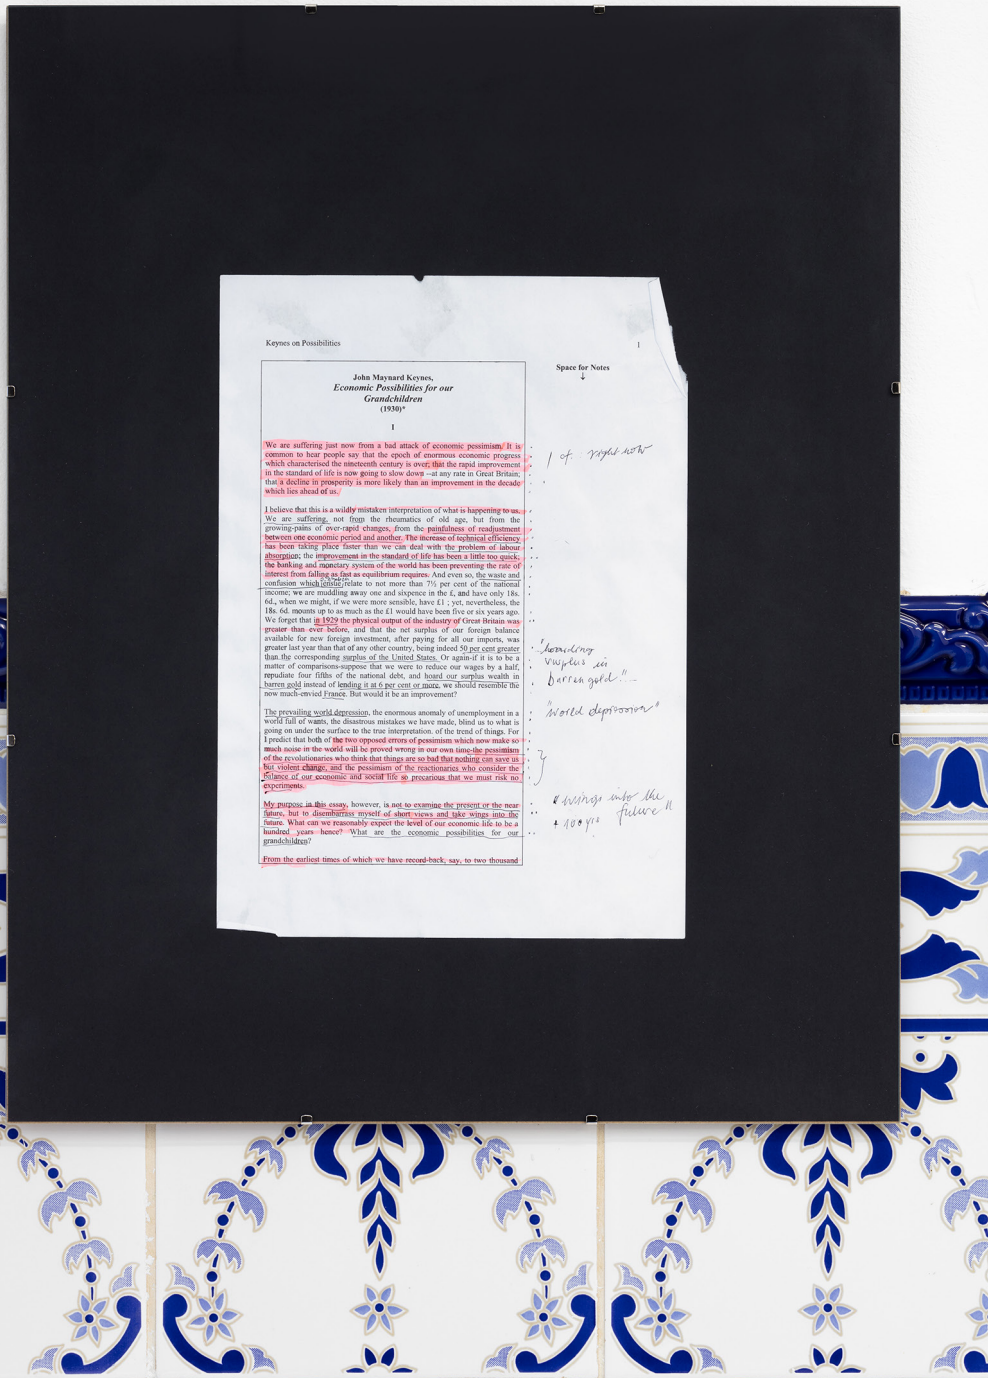 Keynes on Possibilities
1
Space for Notes
↓
John Maynard Keynes,
Economic Possibilities for our
Grandchildren
(1930)*
I
We are suffering just now from a bad attack of economic pessimism. It is
common to hear people say that the epoch of enormous economic progress
which characterised the nineteenth century is over; that the rapid improvement
in the standard of life is now going to slow down --at any rate in Great Britain;
that a decline in prosperity is more likely than an improvement in the decade
which lies ahead of us.
right now
I believe that this is a wildly mistaken interpretation of what is happening to us.
We are suffering, not from the rheumatics of old age, but from the
growing-pains of over-rapid changes, from the painfulness of readjustment
between one economic period and another. The increase of technical efficiency
has been taking place faster than we can deal with the problem of labour
absorption; the improvement in the standard of life has been a little too quick;
the banking and monetary system of the world has been preventing the rate of
interest from falling as fast as equilibrium requires. And even so, the waste and
confusion which ensue relate to not more than 7½ per cent of the national
income; we are muddling away one and sixpence in the £, and have only 18s.
6d., when we might, if we were more sensible, have £1 ; yet, nevertheless, the
18s. 6d. mounts up to as much as the £1 would have been five or six years ago.
We forget that in 1929 the physical output of the industry of Great Britain was
greater than ever before, and that the net surplus of our foreign balance
available for new foreign investment, after paying for all our imports, was
greater last year than that of any other country, being indeed 50 per cent greater
than the corresponding surplus of the United States. Or again-if it is to be a
matter of comparisons-suppose that we were to reduce our wages by a half,
repudiate four fifths of the national debt, and hoard our surplus wealth in
barren gold instead of lending it at 6 per cent or more, we should resemble the
now much-envied France. But would it be an improvement?
"hoarding
surplus in
barren gold!"
The prevailing world depression, the enormous anomaly of unemployment in a
world full of wants, the disastrous mistakes we have made, blind us to what is
going on under the surface to the true interpretation. of the trend of things. For
I predict that both of the two opposed errors of pessimism which now make so
much noise in the world will be proved wrong in our own time-the pessimism
of the revolutionaries who think that things are so bad that nothing can save us
but violent change, and the pessimism of the reactionaries who consider the
balance of our economic and social life so precarious that we must risk no
experiments.
"world depression"
My purpose in this essay, however, is not to examine the present or the near
future, but to disembarrass myself of short views and take wings into the
future. What can we reasonably expect the level of our economic life to be a
hundred years hence? What are the economic possibilities for our
grandchildren?
"wings into the
future"
+ 100 yrs
From the earliest times of which we have record-back, say, to two thousand